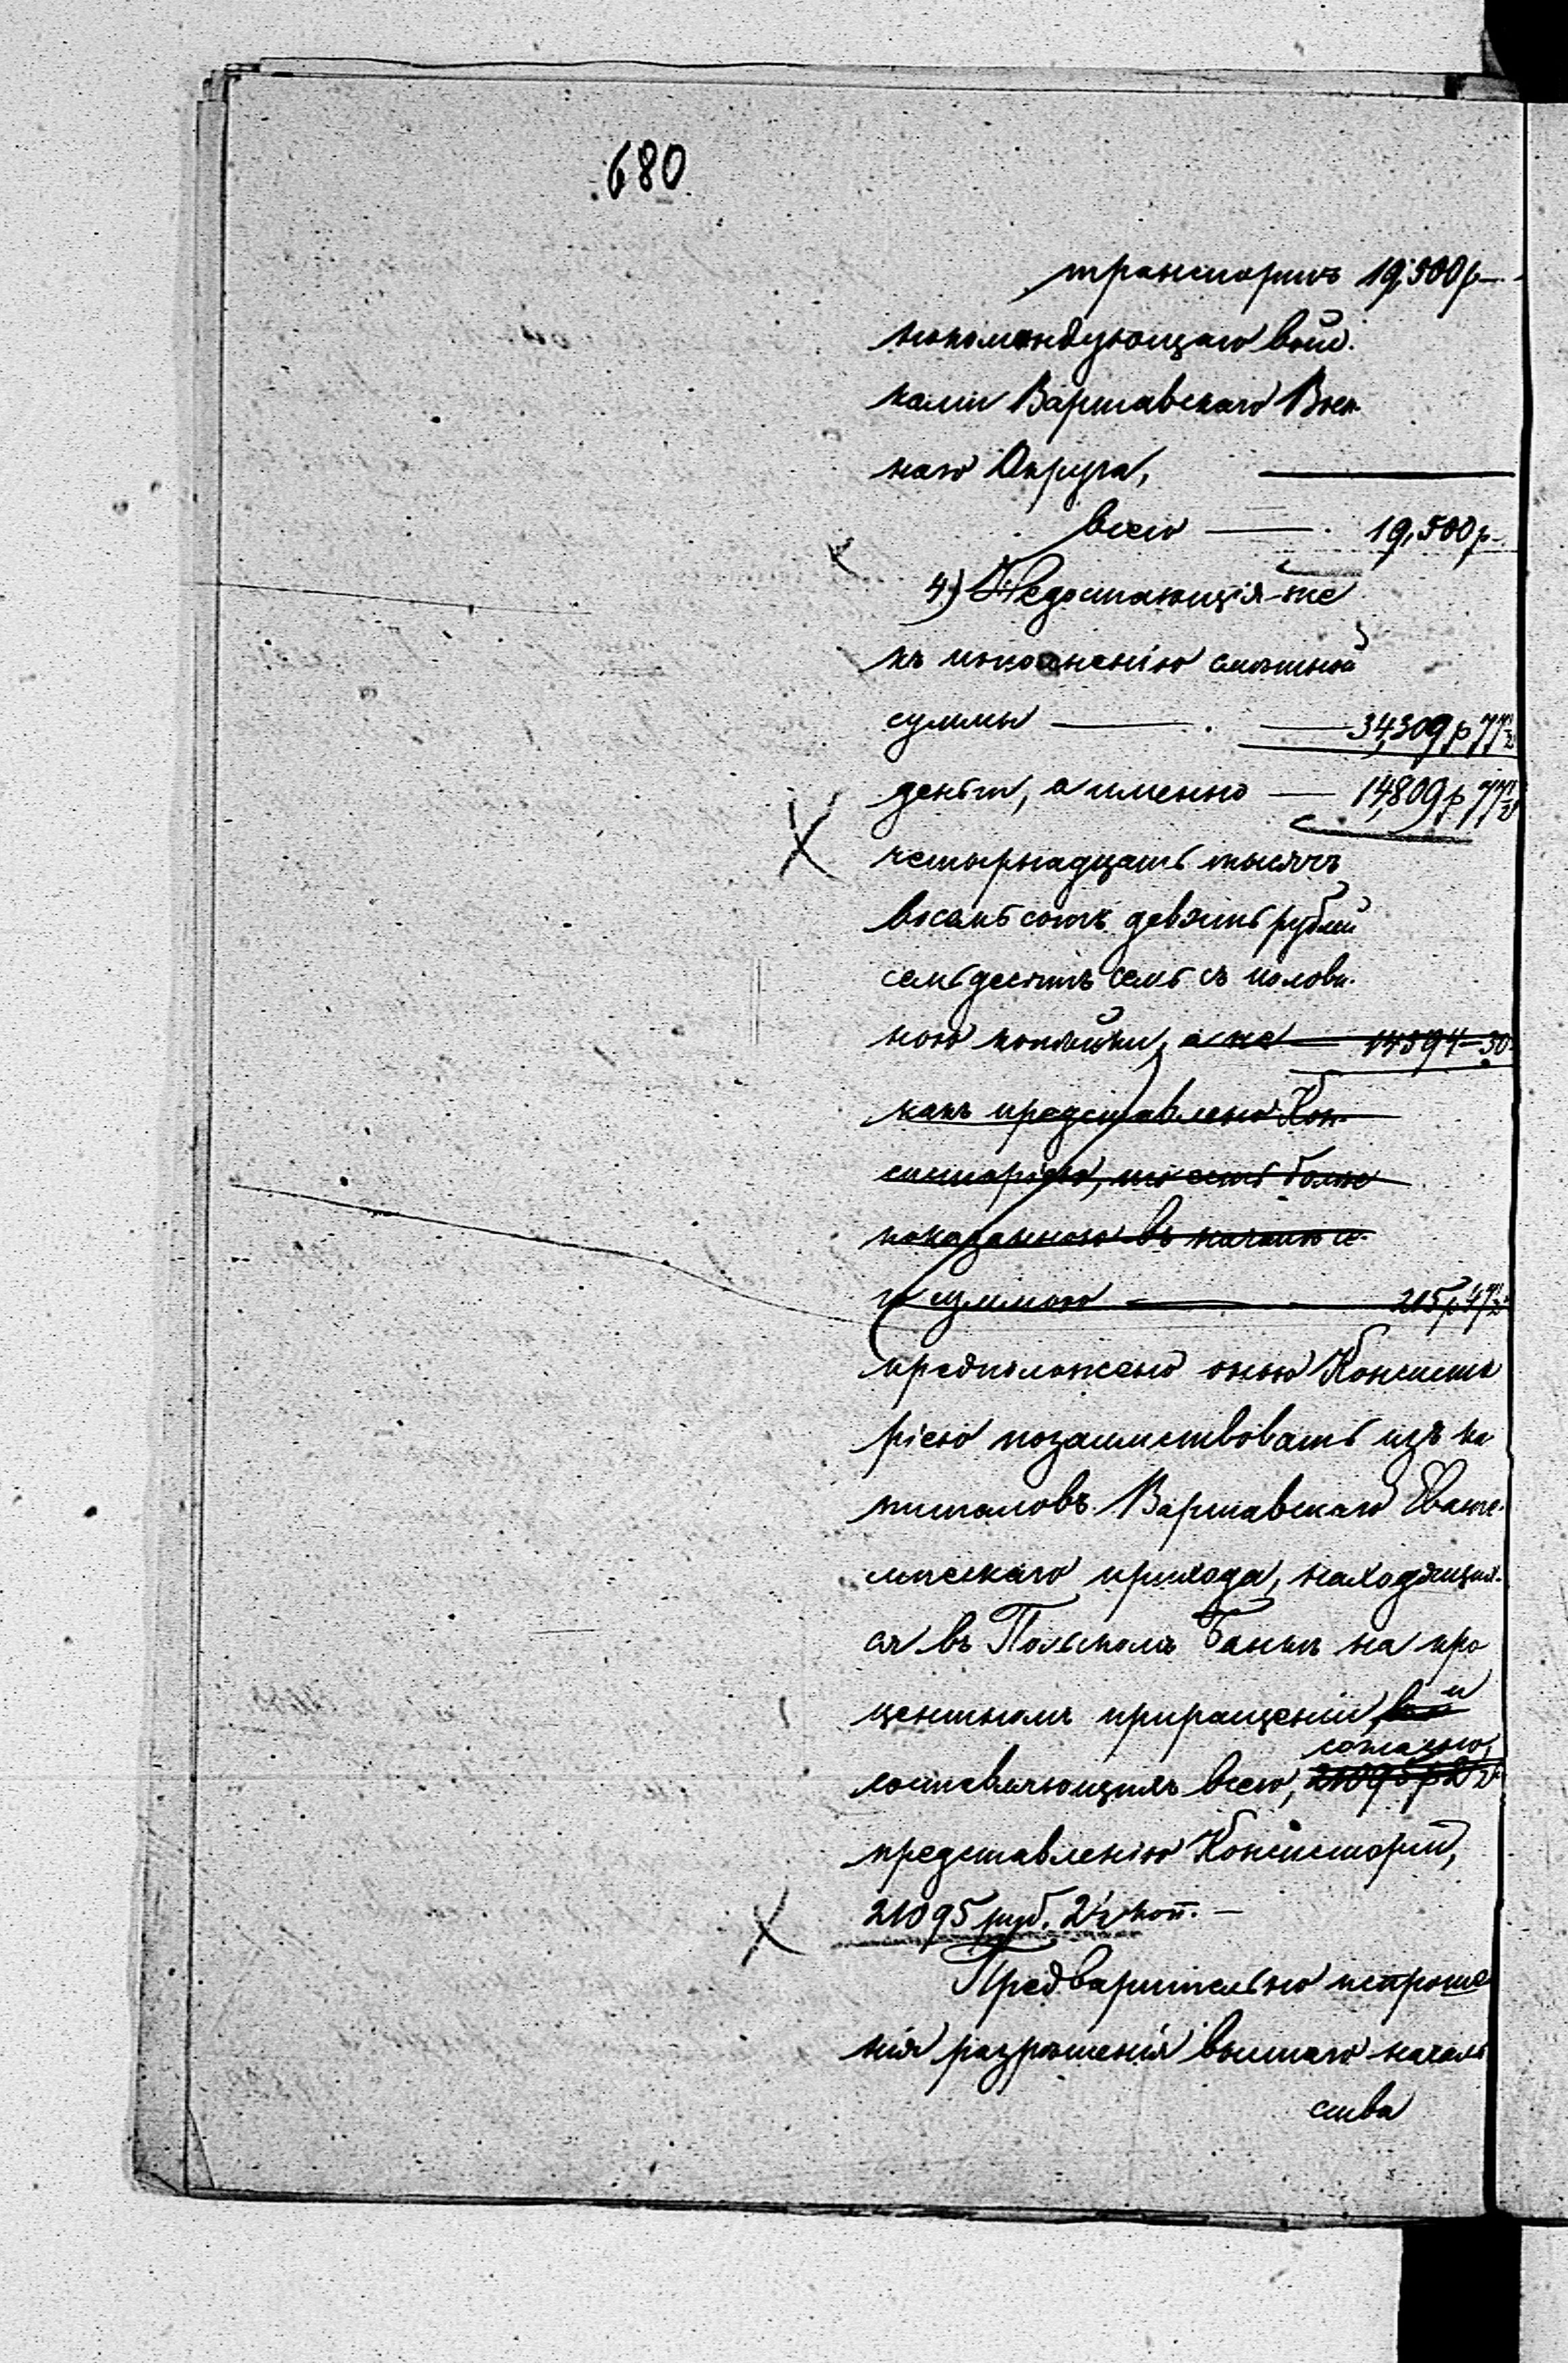 680
транспортъ 19,500 р —
нокомандующаго вой-
ками Варшавскаго Воен-
наго Округа,
всего — 19,500 р —
4) Недостающія-же
къ пополненію смѣтной
суммы — — 34,309 р 77½
денги, а именно — 14,809 р 77½
четырнадцать тысячъ
восемь сотъ девять рублей
семьдесятъ семь съ полови-
ною копѣйки, а не — 14594 — 30
какъ представлено Кон-
систоріею, то есть болѣе
показаннаго въ началѣ се-
суммою — 215 р 47½
предположено оною Консисто
ріею позаимствовать изъ ка
питаловъ Варшавскаго Еванге-
лическаго прихода, находящих-
ся въ Польскомъ Банкѣ на про
центномъ приращеніи, и
согласно,
составляющихъ всего, 21095 р 2½
представленію Консисторіи,
21095 руб. 2½ коп. —
Предварительно испроше
нія разрѣшенія высшаго началь
ства